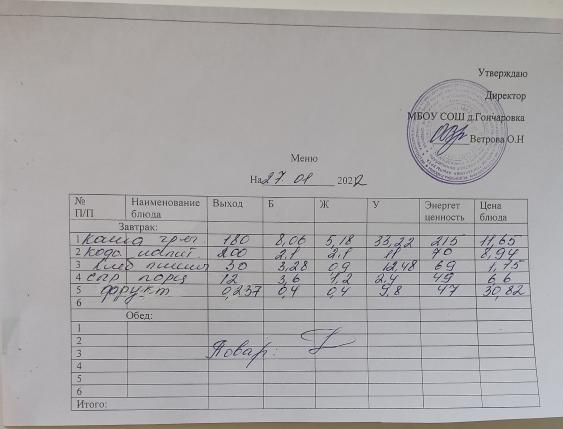 Утверждаю
Директор
МБОУ СОШ д.Гончаровка
Ветрова О.Н
Меню
На 27 01 2022
№ П/П Наименование блюда Выход Б Ж У Энергет ценность Цена блюда
Завтрак:
1 каша греч. 180 8,06 5,18 33,22 215 11,65
2 200 2,1 2,1 11 70 8,94
3 хлеб пшен 30 3,28 0,9 12,48 69 1,75
4 сыр порц 12 3,6 4,2 2,4 49 6,6
5 фрукт 0,237 0,4 0,4 9,8 47 30,82
6
Обед:
1
2
3 Повар:
4
5
6
Итого: